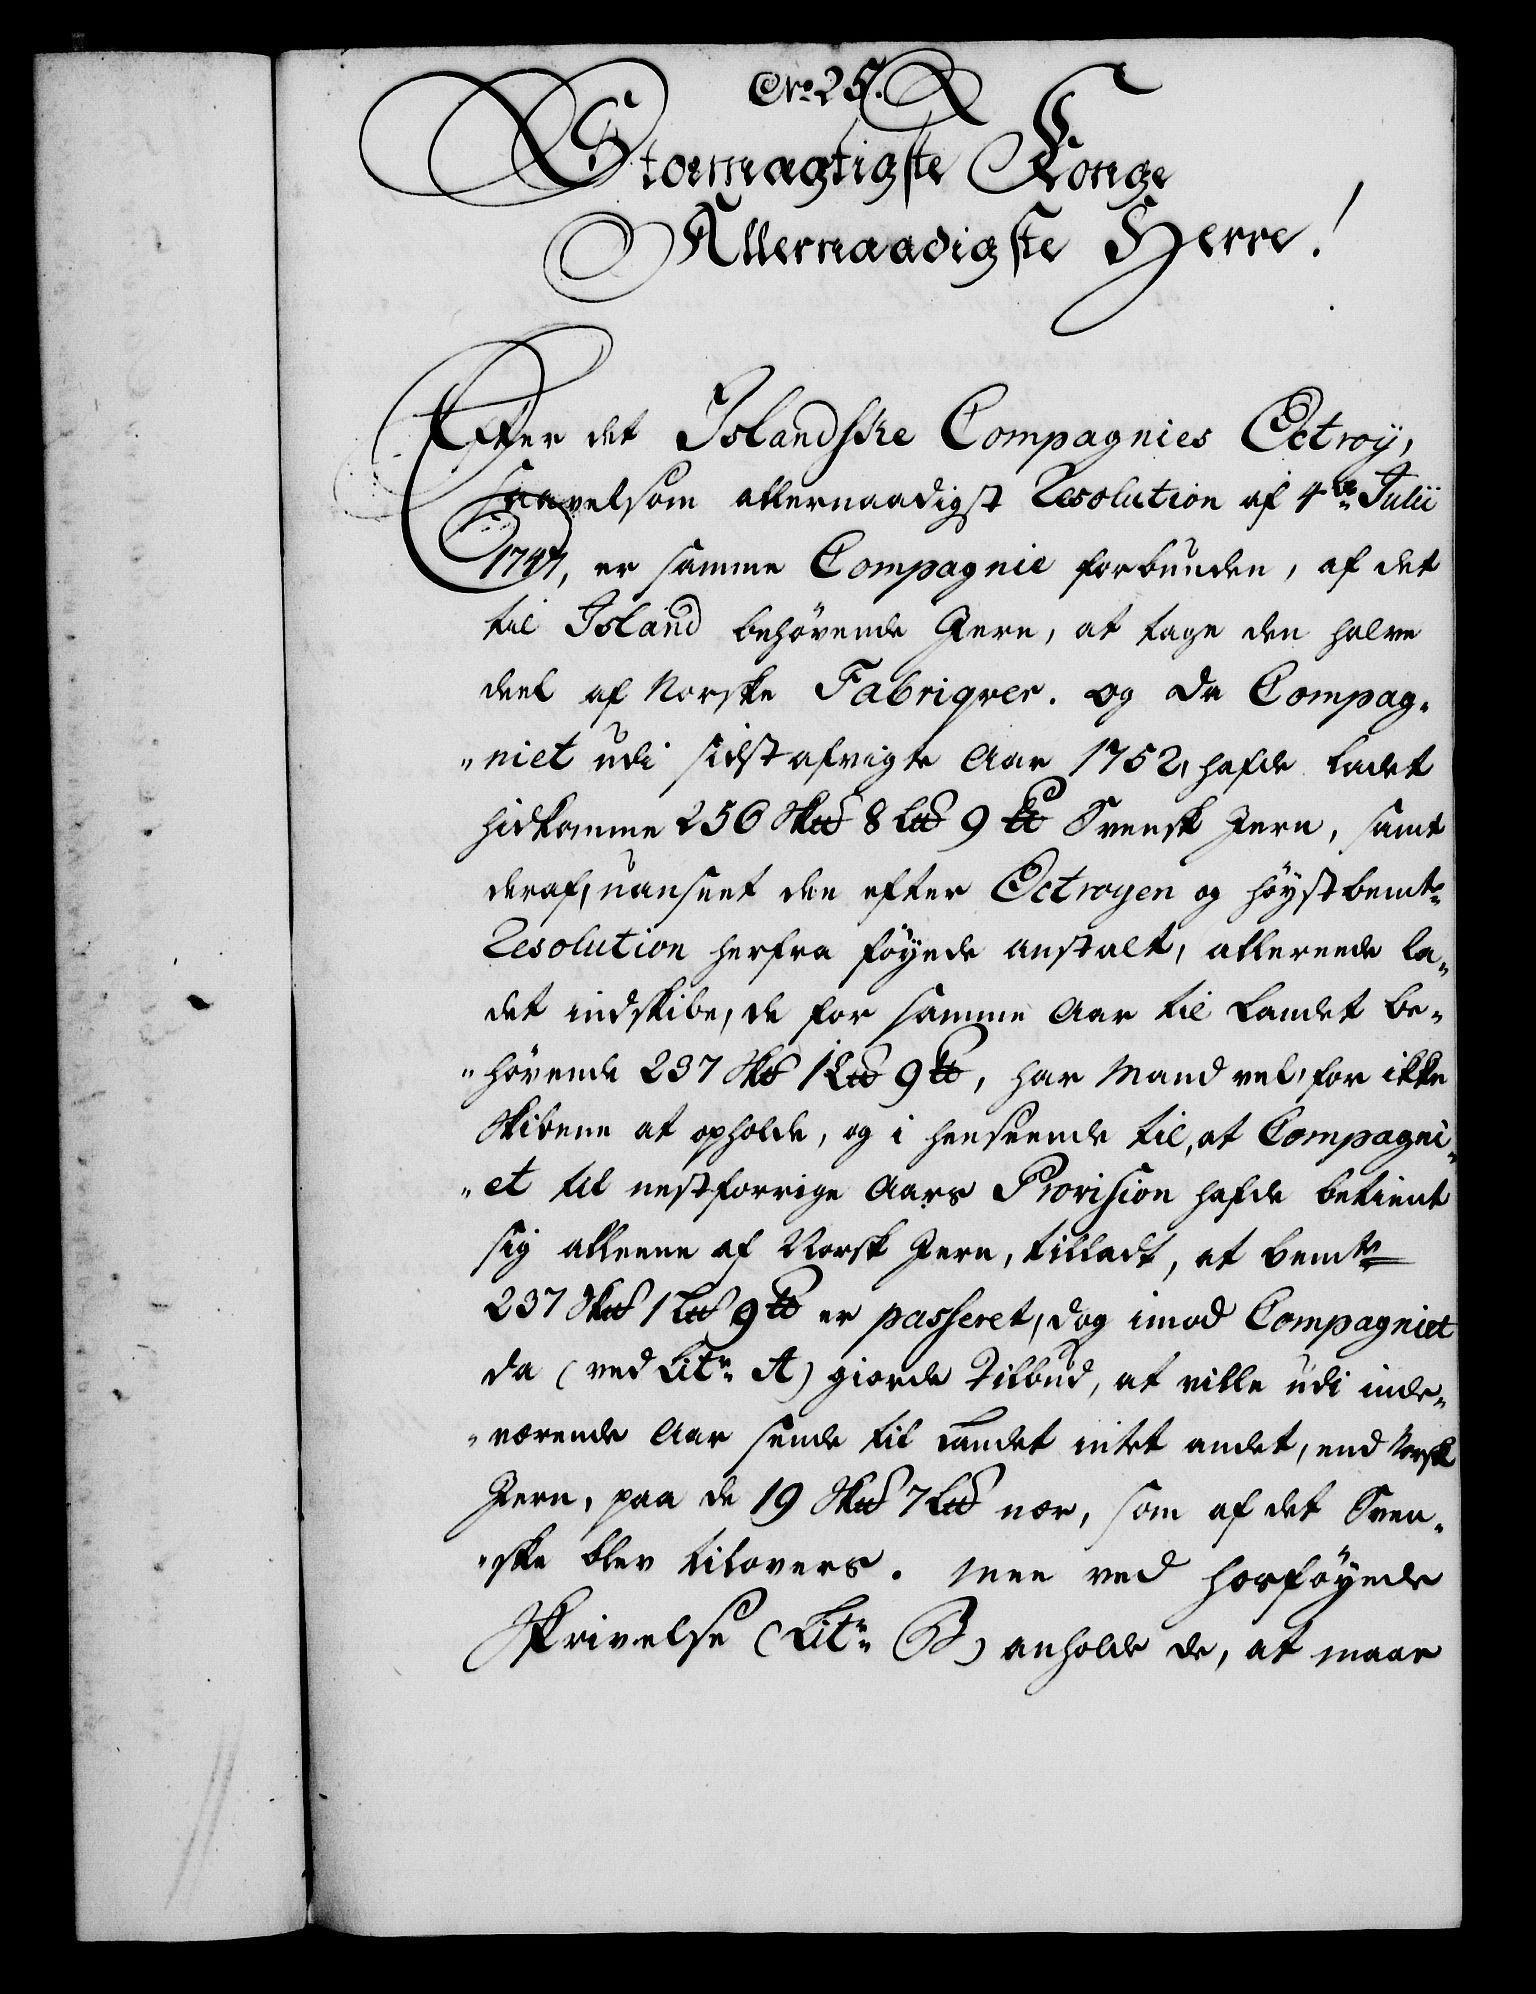 No. 25.
Stormægtigste Konge
Allernaadigste Herre!
Efter det Islandske Compagnies Octroy,
saavelsom allernaadigst Resolution af 4de Julii
1747, er samme Compagnie forbunden, af det
til Island behøvende Jern, at tage den halve
deel af Norske Fabriqver. og da Compag-
niet udi sidstafvigte Aar 1752, hafde ladet
hidkomme 256 Sk℔ 8 L℔ 9 ℔ Svensk Jern, samt
deraf, uanseet den efter Octroyen og høystbemte
Resolution herfra føyede anstalt, allereede la-
det indskibe, de for samme Aar til Landet be-
høvende 237 Sk℔ 1 L℔ 9 ℔, har Mand vel, for ikke
Skibene at opholde, og i henseende til, at Compagni-
et til nestforrige Aars Provision hafde betient
sig alleene af Norsk Jern, tilladt, at bemte
237 Sk℔ 1 L℔ 9 ℔ er passeret, dog imod Compagniet
da (ved Litr. A) giorde Tilbud, at ville udi inde-
værende Aar sende til Landet intet andet, end Norsk
Jern, paa de 19 Sk℔ 7 L℔ nær, som af det Sven-
ske blev tilovers. Men ved hosføyede
Skrivelse (Litr. B) anholde de, at maae